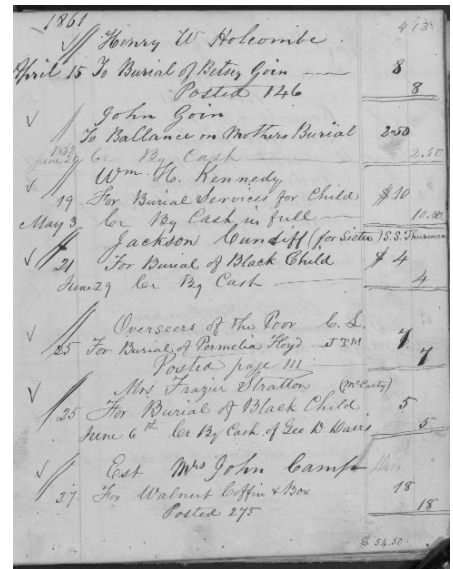 1861 413
Henry W Holcombe
April 15 To Burial of Betsey Goin 8
Posted 146 8
John Goin
To Ballance on Mothers Burial 2.50
1862 June 29 Cr By Cash 2.50
Wm. H. Kennedy
19 For Burial Services for Child $10
May 3 Cr By Cash in full 10.00
Jackson Cundiff (for Sister) S.S. Thurman
21 For Burial of Black Child $4
June 29 Cr By Cash 4
Overseers of the Poor C.L.
25 For Burial of Permelia Floyd JTM 7
Posted page 111 7
Mrs Frazier Stratton (McCarty)
25 For Burial of Black Child 5
June 6th Cr By Cash of Geo D. Davis 5
Est Mrs John Camp
27 For Walnut Coffin & Box 18
Posted 275 18
$ 54.50